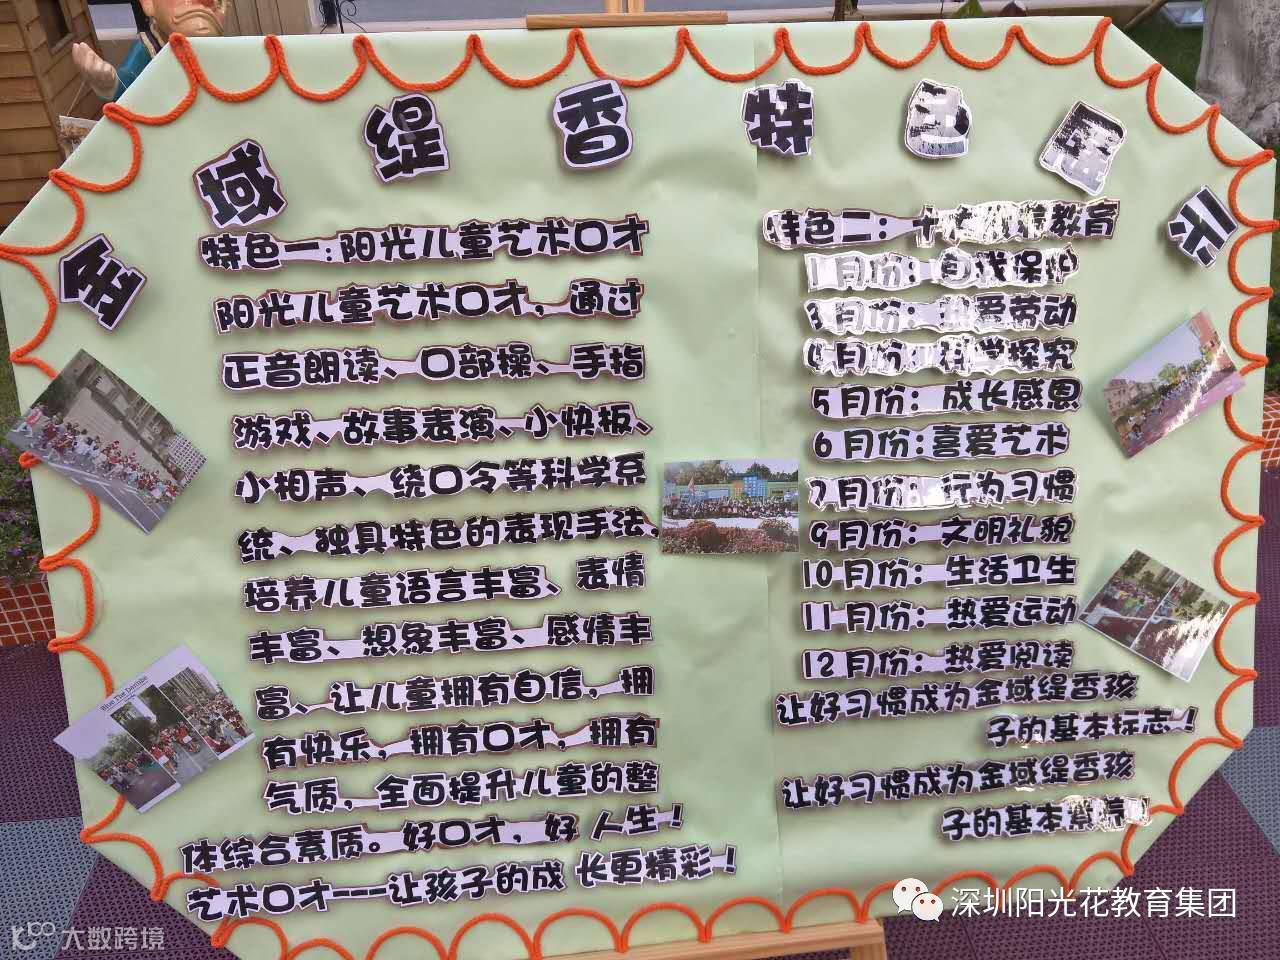 金域缇香特色展示
特色一:阳光儿童艺术口才
阳光儿童艺术口才，通过
正音朗读、口部操、手指
游戏、故事表演、小快板、
小相声、绕口令等科学系
统、独具特色的表现手法，
培养儿童语言丰富、表情
丰富、想象丰富、感情丰
富、让儿童拥有自信，拥
有快乐，拥有口才，拥有
气质，全面提升儿童的整
体综合素质。好口才，好人生！
艺术口才---让孩子的成长更精彩！
特色二：十大 教育
1月份：自我保护
3月份：热爱劳动
4月份：科学探究
5月份：成长感恩
6月份：喜爱艺术
7月份：行为习惯
9月份：文明礼貌
10月份：生活卫生
11月份：热爱运动
12月份：热爱阅读
让好习惯成为金域缇香孩
子的基本标志！
让好习惯成为金域缇香孩
子的基本素养！
Blue The Dombie
深圳阳光花教育集团
大数跨境